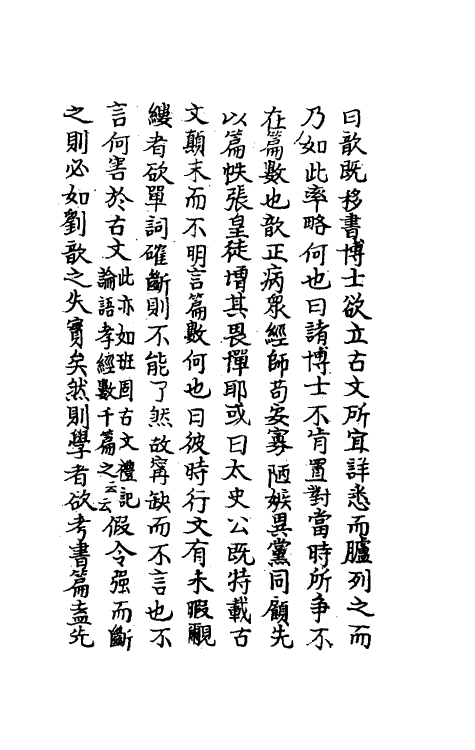 曰歆既移書博士欲立古文所宜詳悉而臚列之而
乃如此率略何也曰諸博士不肯置對當時所爭不
在篇數也歆正病衆經師苟妄寡陋嫉異黨同顧先
以篇帙張皇徒增其畏憚耶或曰太史公既特載古
文顛末而不明言篇數何也曰彼時行文有未暇覼
縷者欲單詞確斷則不能了然故寧缺而不言也不
言何害於古文此亦如班固古文禮記論語孝經數千篇之云云假令强而斷
之則必如劉歆之失實矣然則學者欲考書篇盍先